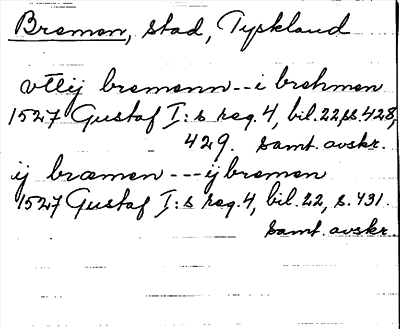 Bremen, stad, Tyskland
vtlij bremenn--i brehmen
1527 Gustaf I:s reg. 4, bil. 22, ss. 428,
429. Samt. avskr.
ij bræmen---ij bremen
1527 Gustaf I:s reg. 4, bil. 22, s. 431.
Samt. avskr.